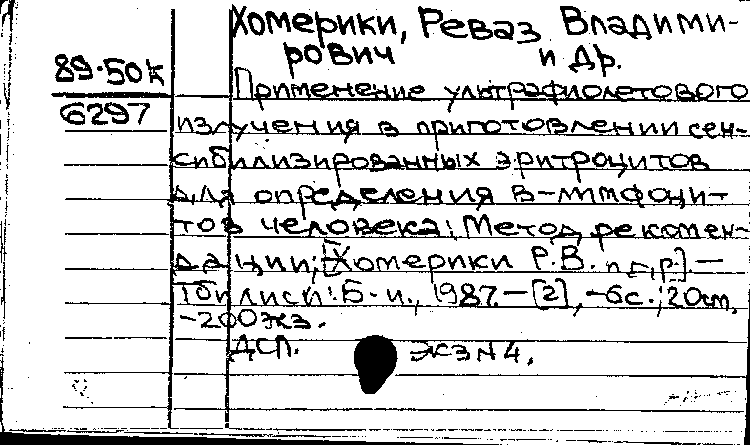 Хомерики, Реваз Владими-
рович и др.
89.50к
6297
Применение ультрафиолетового
излучения в приготовлении сен-
сибилизированных эритроцитов
для определения в-лимфоци-
тов человека: Метод. рекомен-
дации; [Хомерики Р.В.
Тбилиси: Б.и., 1987. - [2], - 6с.; 20см.
-200экз.
ДСП. экз N 4.